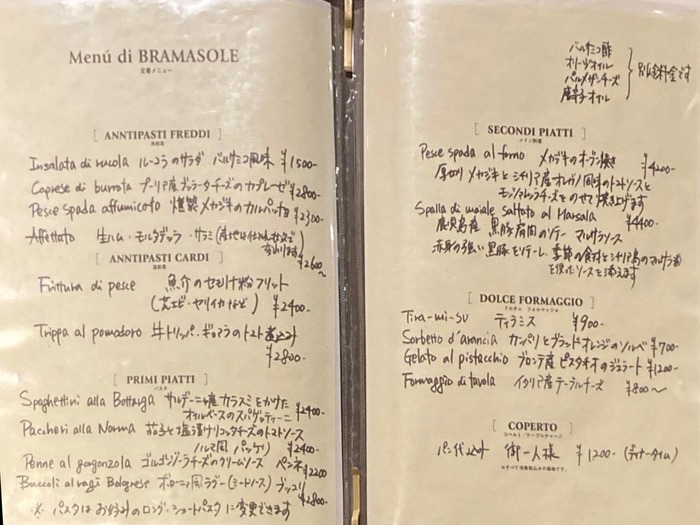 Menú di BRAMASOLE
定番メニュー
[ ANNTIPASTI FREDDI ]
冷前菜
Insalata di rucola ルーコラのサラダ バルサミコ風味 ¥1500-
Caprese di burrata プーリア産ブッラータチーズのカプレーゼ ¥2800-
Pesce spada affumicato 燻製メカジキのカルパッチョ ¥2300-
Affettato 生ハム・モルタデッラ・サラミ (産地は仕入れ状況で
変わります)
¥2600～
[ ANNTIPASTI CARDI ]
温前菜
Frittura di pesce 魚介のセモリナ粉フリット
(芝エビ・ヤリイカなど) ¥2400-
Trippa al pomodoro 牛トリッパ・ギアラのトマト煮込み
¥2800-
[ PRIMI PIATTI ]
パスタ
Spaghettini alla Bottarga サルデーニャ産カラスミをかけた
オイルベースのスパゲッティーニ ¥2400-
Paccheri alla Norma 茄子と塩漬けリコッタチーズのトマトソース
ノルマ風 パッケリ ¥2400-
Penne al gorgonzola ゴルゴンゾーラチーズのクリームソース ペンネ ¥2200
Buccoli al ragi Bolognese ボローニャ風ラグー(ミートソース) ブッコリ ¥2800-
※ パスタはお好みのロング・ショートパスタに変更できます
バルサミコ酢
オリーブオイル
パルメザンチーズ
唐辛子オイル
別途料金です
[ SECONDI PIATTI ]
メイン料理
Pesce spada al forno メカジキのオーブン焼き ¥4200-
厚切りメカジキとシチリア産オレガノ風味のトマトソースと
モッツァレラチーズをのせて焼き上げます
Spalla di maiale saltato al Marsala ¥4400-
鹿児島産 黒豚肩肉のソテー マルサラソース
赤身の強い黒豚をソテーし、季節の食材とシチリア島のマルサラ酒
を使ったソースを添えます
[ DOLCE FORMAGGIO ]
ドルチェ フォルマッジョ
Tira-mi-su ティラミス ¥900-
Sorbetto d'arancia カンパリとブラッドオレンジのソルベ ¥700-
Gelato al pistacchio ブロンテ産 ピスタチオのジェラート ¥1200-
Formaggio di tavola イタリア産テーブルチーズ ¥800～
[ COPERTO ]
コペルト/テーブルチャージ
パン代込み 御一人様 ¥1200- (ディナータイム)
※すべて消費税込みの価格です。